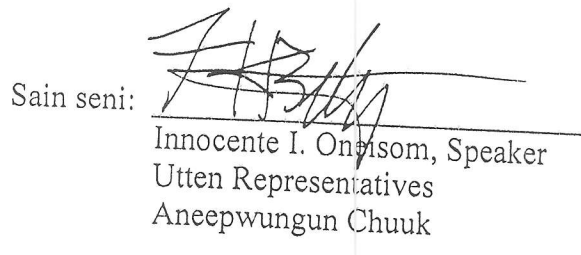 Sain seni:
Innocente I. Oneisom, Speaker
Utten Representatives
Aneepwungun Chuuk